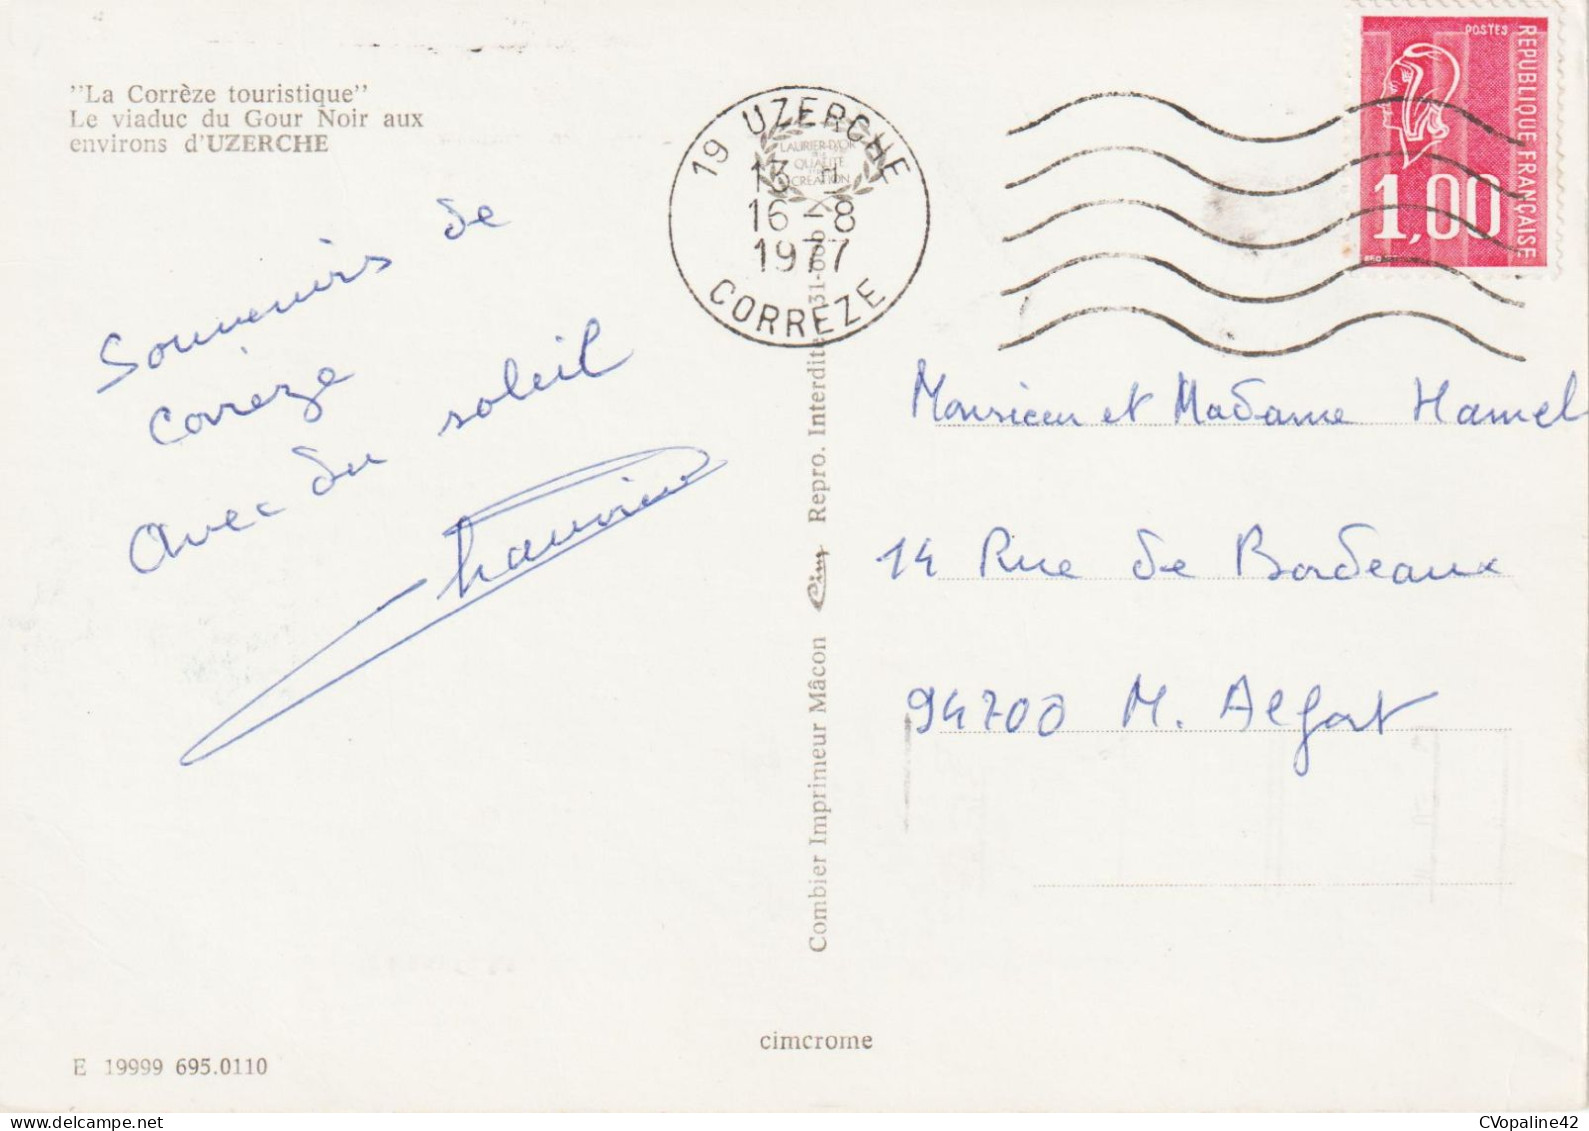 "La Corrèze touristique"
Le viaduc du Gour Noir aux
environs d'UZERCHE
Souvenirs de
Corrèze
Avec du soleil
19 UZERCHE
LAURIER D'OR
QUALITÉ
CRÉATION
13 H
16-8
1977
CORREZE
POSTES
REPUBLIQUE FRANÇAISE
1,00
Combier Imprimeur Mâcon Cim Repro. Interdite
Monsieur et Madame Hamel
14 Rue de Bordeaux
94700 M. Alfort
cimcrome
E 19999 695.0110
CVopaline42